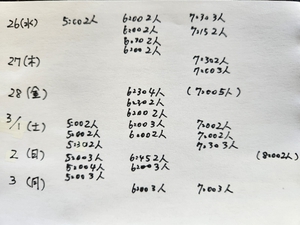 26(水) 5:00 2人 6:00 2人 7:30 3人
6:00 2人 7:15 2人
6:30 2人
6:00 2人
27(木) 7:30 2人
7:00 3人
28(金) 6:30 4人 (7:00 5人)
6:30 2人
6:00 2人
3/1(土) 5:00 2人 6:00 3人 7:00 2人
5:00 2人 6:00 2人 7:00 2人
5:30 2人 7:30 3人
2(日) 5:00 3人 6:45 2人 (8:00 2人)
5:00 4人 6:00 3人
3(月) 5:00 3人
6:00 3人 7:00 3人